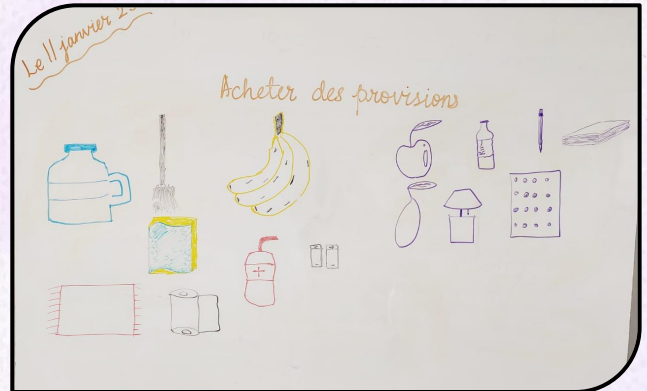 Le 11 janvier
Acheter des provisions